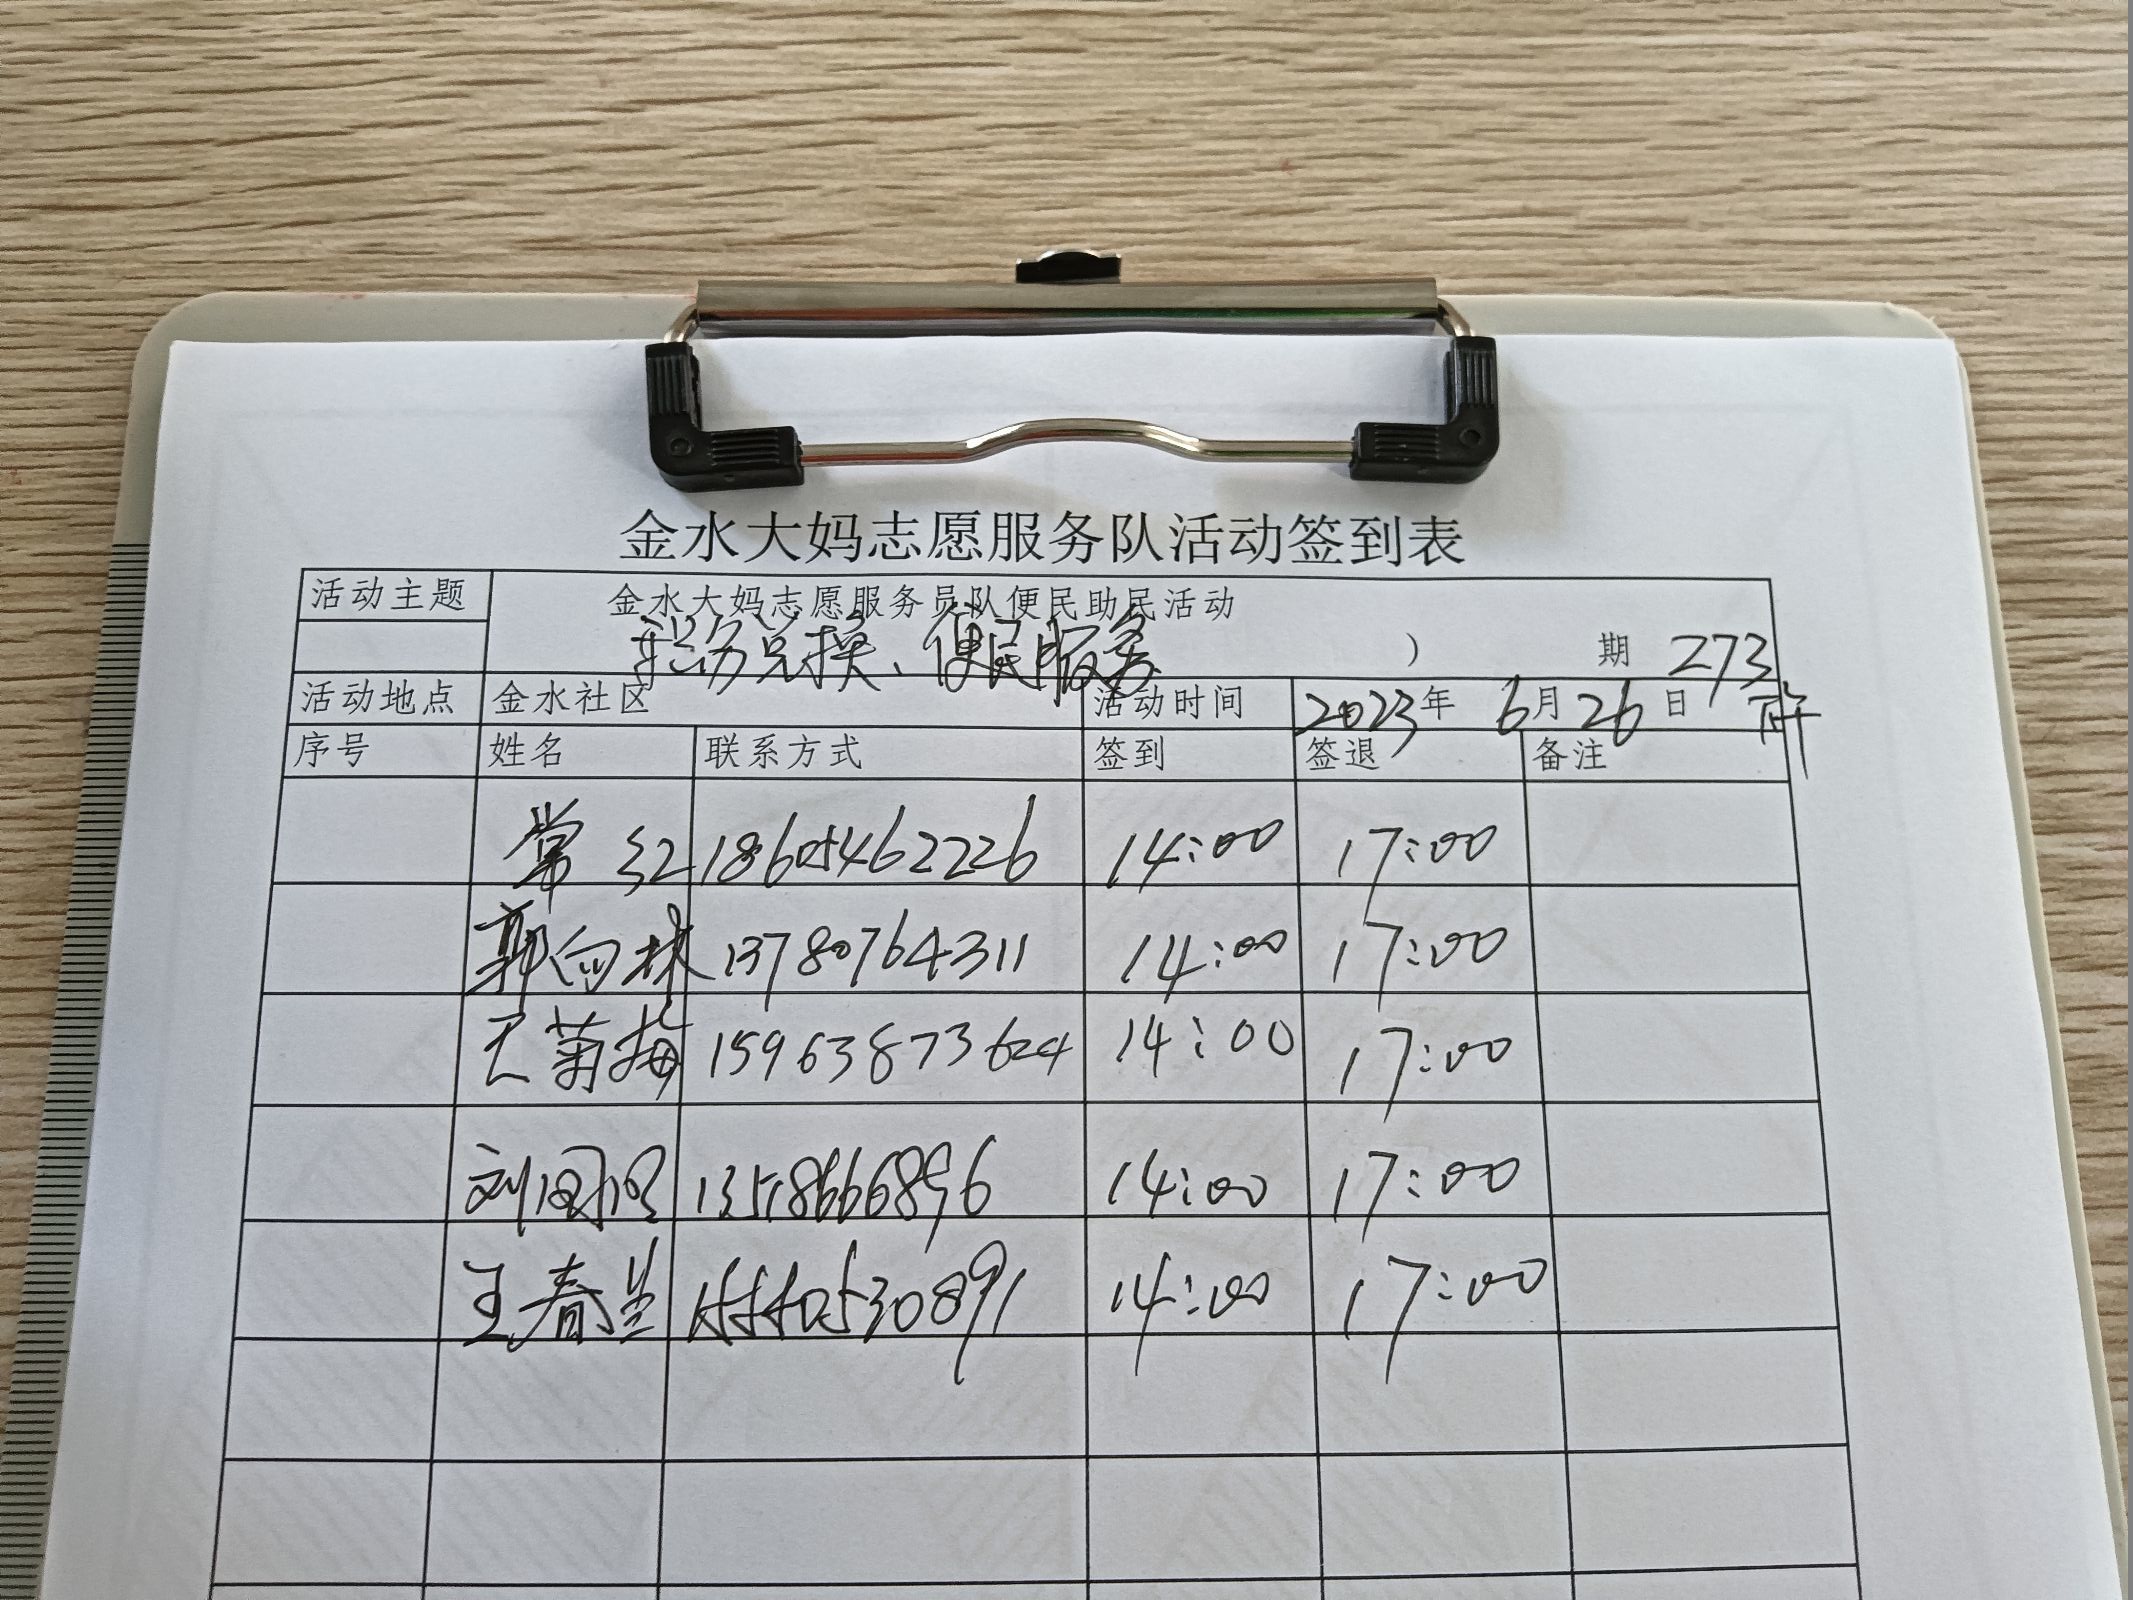 金水大妈志愿服务队活动签到表
活动主题 金水大妈志愿服务员队便民助民活动
积分兑换、便民服务 ） 期 273
活动地点 金水社区 活动时间 2023年 6月26日 下午
序号 姓名 联系方式 签到 签退 备注
常红 18605462226 14:00 17:00
郭向林 13780764311 14:00 17:00
王菊梅 15963873624 14:00 17:00
刘 14:00 17:00
王春兰 14:00 17:00